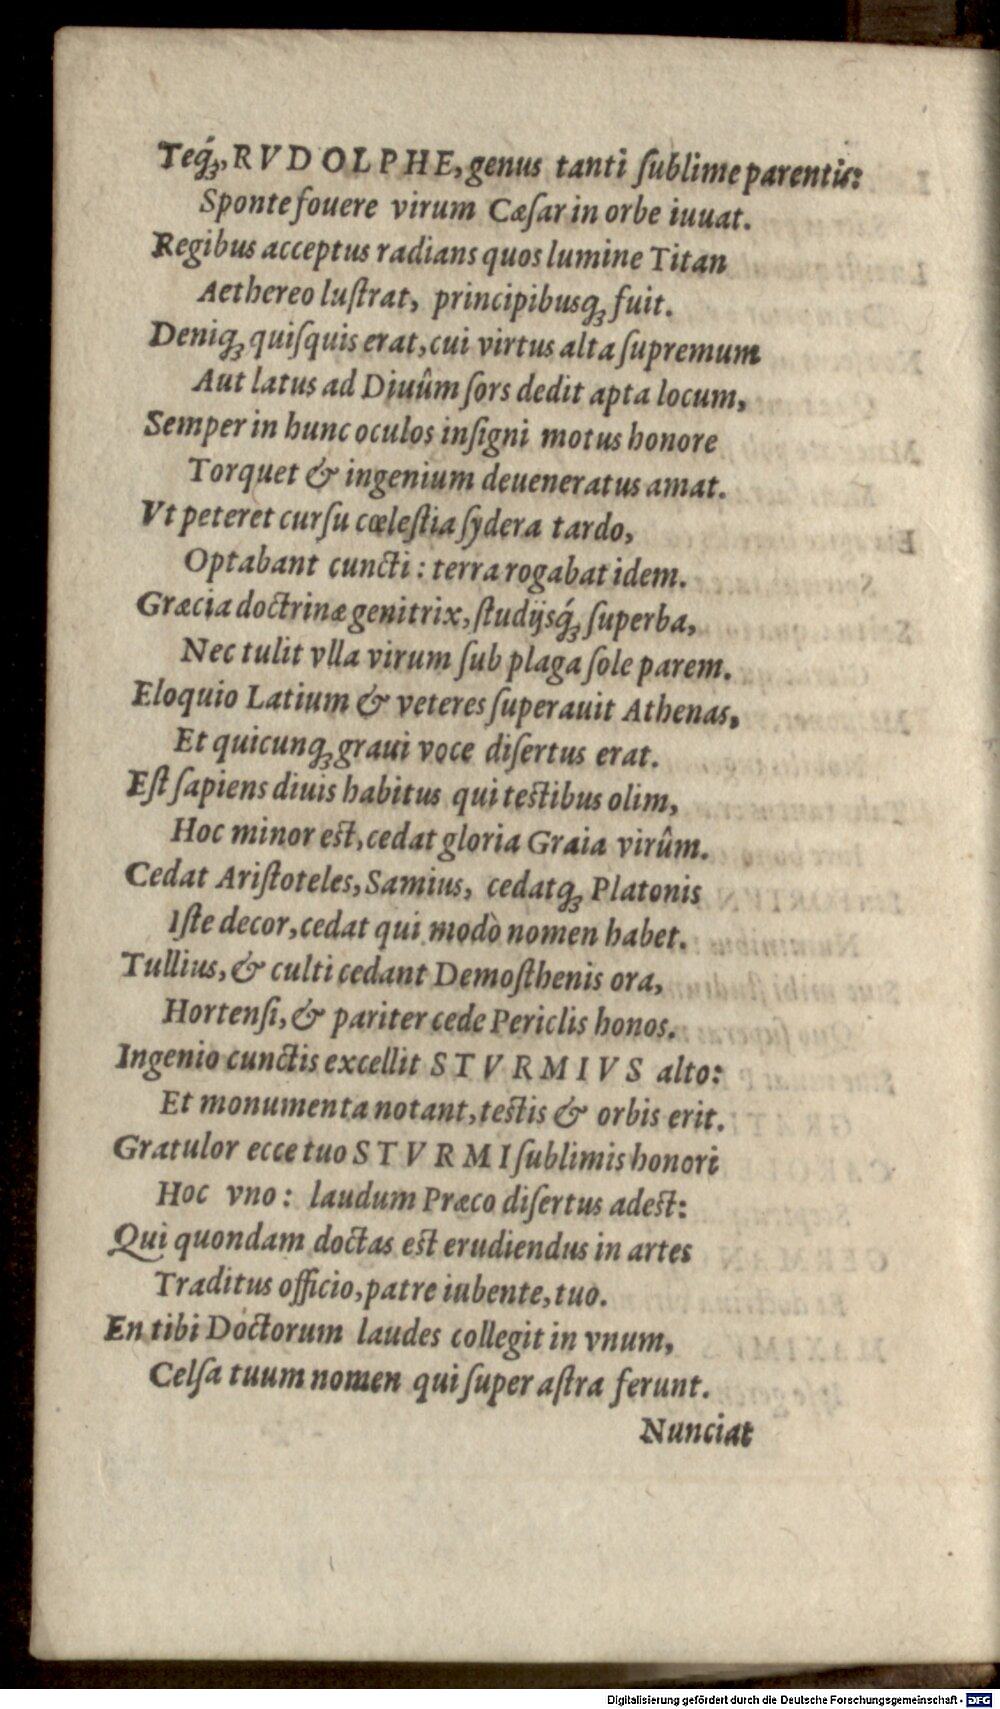 Teq́ꝫ, RVDOLPHE, genus tanti ſublime parentis:
Sponte fouere virum Cæſar in orbe iuuat.
Regibus acceptus radians quos lumine Titan
Aethereo luſtrat, principibusqꝫ fuit.
Deniqꝫ quiſquis erat, cui virtus alta ſupremum
Aut latus ad Diuûm ſors dedit apta locum,
Semper in hunc oculos inſigni motus honore
Torquet & ingenium deueneratus amat.
Vt peteret curſu cœleſtia ſydera tardo,
Optabant cuncti: terra rogabat idem.
Græcia doctrinæ genitrix, ſtudijsq́ꝫ ſuperba,
Nec tulit vlla virum ſub plaga ſole parem.
Eloquio Latium & veteres ſuperauit Athenas,
Et quicunqꝫ graui voce diſertus erat.
Eſt ſapiens diuis habitus qui testibus olim,
Hoc minor est, cedat gloria Graia virûm.
Cedat Ariſtoteles, Samius, cedatqꝫ Platonis
Iſte decor, cedat qui modò nomen habet.
Tullius, & culti cedant Demoſthenis ora,
Hortenſi, & pariter cede Periclis honos.
Ingenio cunctis excellit STVRMIVS alto:
Et monumenta notant, testis & orbis erit.
Gratulor ecce tuo STVRMI ſublimis honori
Hoc vno: laudum Præco diſertus adest:
Qui quondam doctas est erudiendus in artes
Traditus officio, patre iubente, tuo.
En tibi Doctorum laudes collegit in vnum,
Celſa tuum nomen qui ſuper aſtra ferunt.
Nunciat
Digitalisierung gefördert durch die Deutsche Forschungsgemeinschaft - DFG